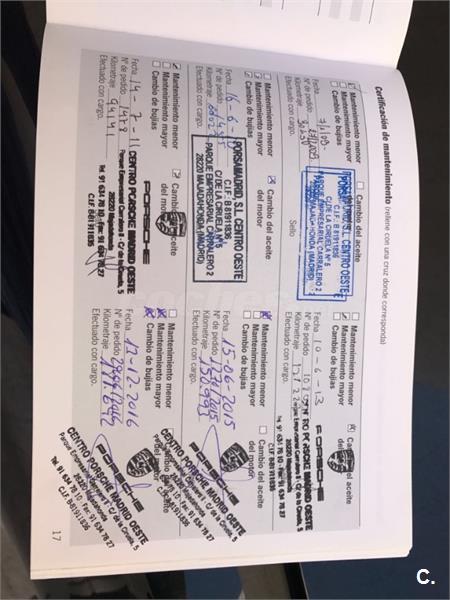 Certificación de mantenimiento (rellene con una cruz donde corresponda)
Mantenimiento menor
Mantenimiento mayor
Cambio de bujías
Cambio del aceite
Fecha
Nº de pedido
Kilometraje
Efectuado con cargo.
Sello
PORSAMADRID, S.L. CENTRO OESTE
C.I.F.: B 81911836
C/DE LA CIRUELA Nº 5
PARQUE EMPRESARIAL CARRALERO 2
28220 MAJADAHONDA (MADRID)
Mantenimiento menor
Mantenimiento mayor
Cambio de bujías
Cambio del aceite
del motor
Fecha 16-6-
Nº de pedido
Kilometraje
Efectuado con cargo.
PORSAMADRID, S.L. CENTRO OESTE
C.I.F.: B 81911836
C/DE LA CIRUELA Nº 5
PARQUE EMPRESARIAL CARRALERO 2
28220 MAJADAHONDA (MADRID)
Mantenimiento menor
Mantenimiento mayor
Cambio de bujías
Cambio del aceite
del motor
Fecha 14-7-11
Nº de pedido
Kilometraje
Efectuado con cargo.
PORSCHE
CENTRO PORSCHE MADRID OESTE
Parque Empresarial Carralero II - C/ de la Ciruela, 5
28220 Majadahonda
Tel. 91 634 78 10 - Fax: 91 634 78 27
C.I.F. B81911836
Mantenimiento menor
Mantenimiento mayor
Cambio de bujías
Fecha 10-4-13
Nº de pedido
Kilometraje
Efectuado con cargo.
PORSCHE
CENTRO PORSCHE MADRID OESTE
Parque Empresarial Carralero II - C/ de la Ciruela, 5
28220 Majadahonda
Tel. 91 634 78 10 - Fax: 91 634 78 27
C.I.F. B81911836
Mantenimiento menor
Mantenimiento mayor
Cambio de bujías
Cambio del aceite
del motor
Fecha 15-06-2015
Nº de pedido
Kilometraje
Efectuado con cargo.
CENTRO PORSCHE MADRID OESTE
Parque Empresarial Carralero II - C/ de la Ciruela, 5
28220 Majadahonda
Tel. 91 634 78 10 - Fax: 91 634 78 27
C.I.F. B81911836
Mantenimiento menor
Mantenimiento mayor
Cambio de bujías
Fecha 13-12-2016
Nº de pedido
Kilometraje
Efectuado con cargo.
PORSCHE
CENTRO PORSCHE MADRID OESTE
Parque Empresarial Carralero II - C/ de la Ciruela, 5
28220 Majadahonda
Tel. 91 634 78 10 - Fax: 91 634 78 27
C.I.F. B81911836
17
C.